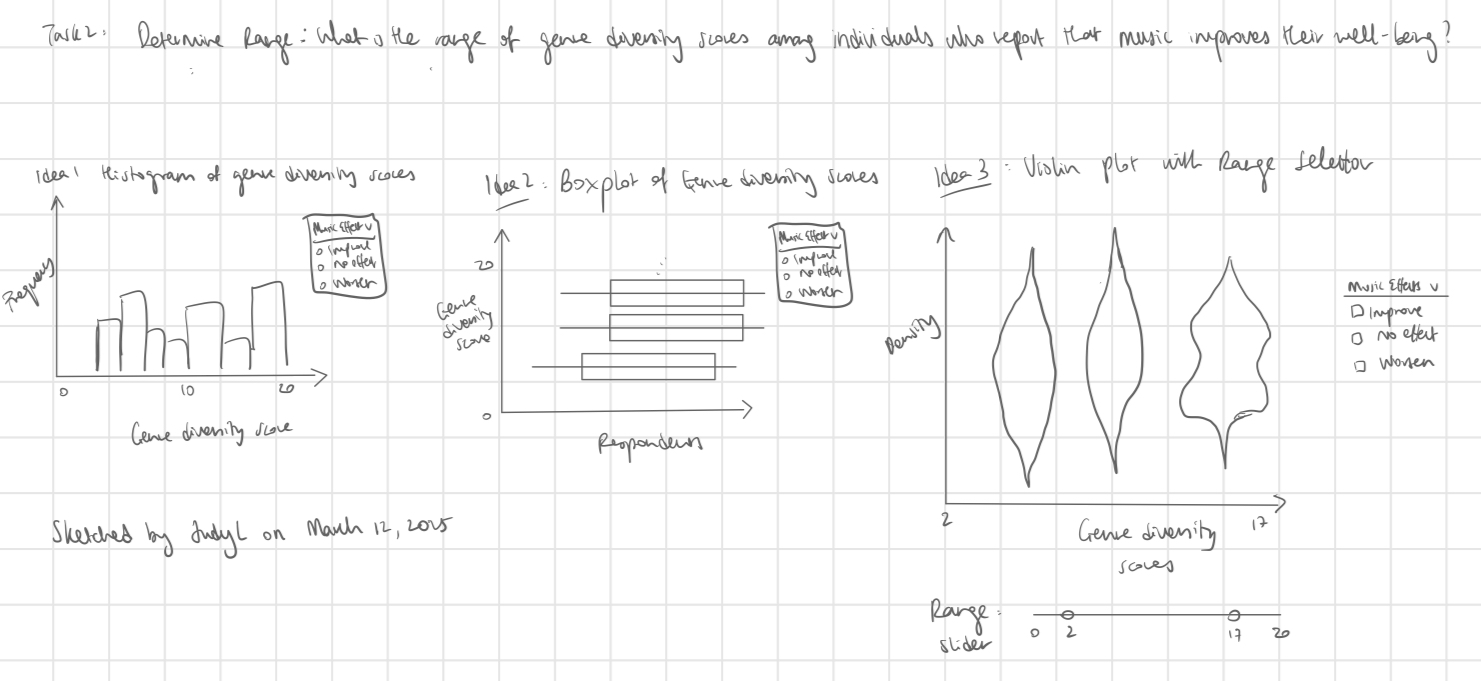 Task 2: Determine Range: What is the range of genre diversity scores among individuals who report that music improves their well-being?
Idea 1 Histogram of genre diversity scores
Frequency
Music Effect v
Improve
no effect
Worsen
0 10 20
Genre diversity score
Idea 2: Boxplot of Genre diversity scores
20
Genre
diversity
score
0
Music Effect v
Improve
no effect
Worsen
Respondents
Idea 3: Violin plot with Range Selector
Density
Music Effects v
Improve
No effect
Worsen
2 17
Genre diversity
scores
Range:
slider
0 2 17 20
Sketched by JudyL on March 12, 2025